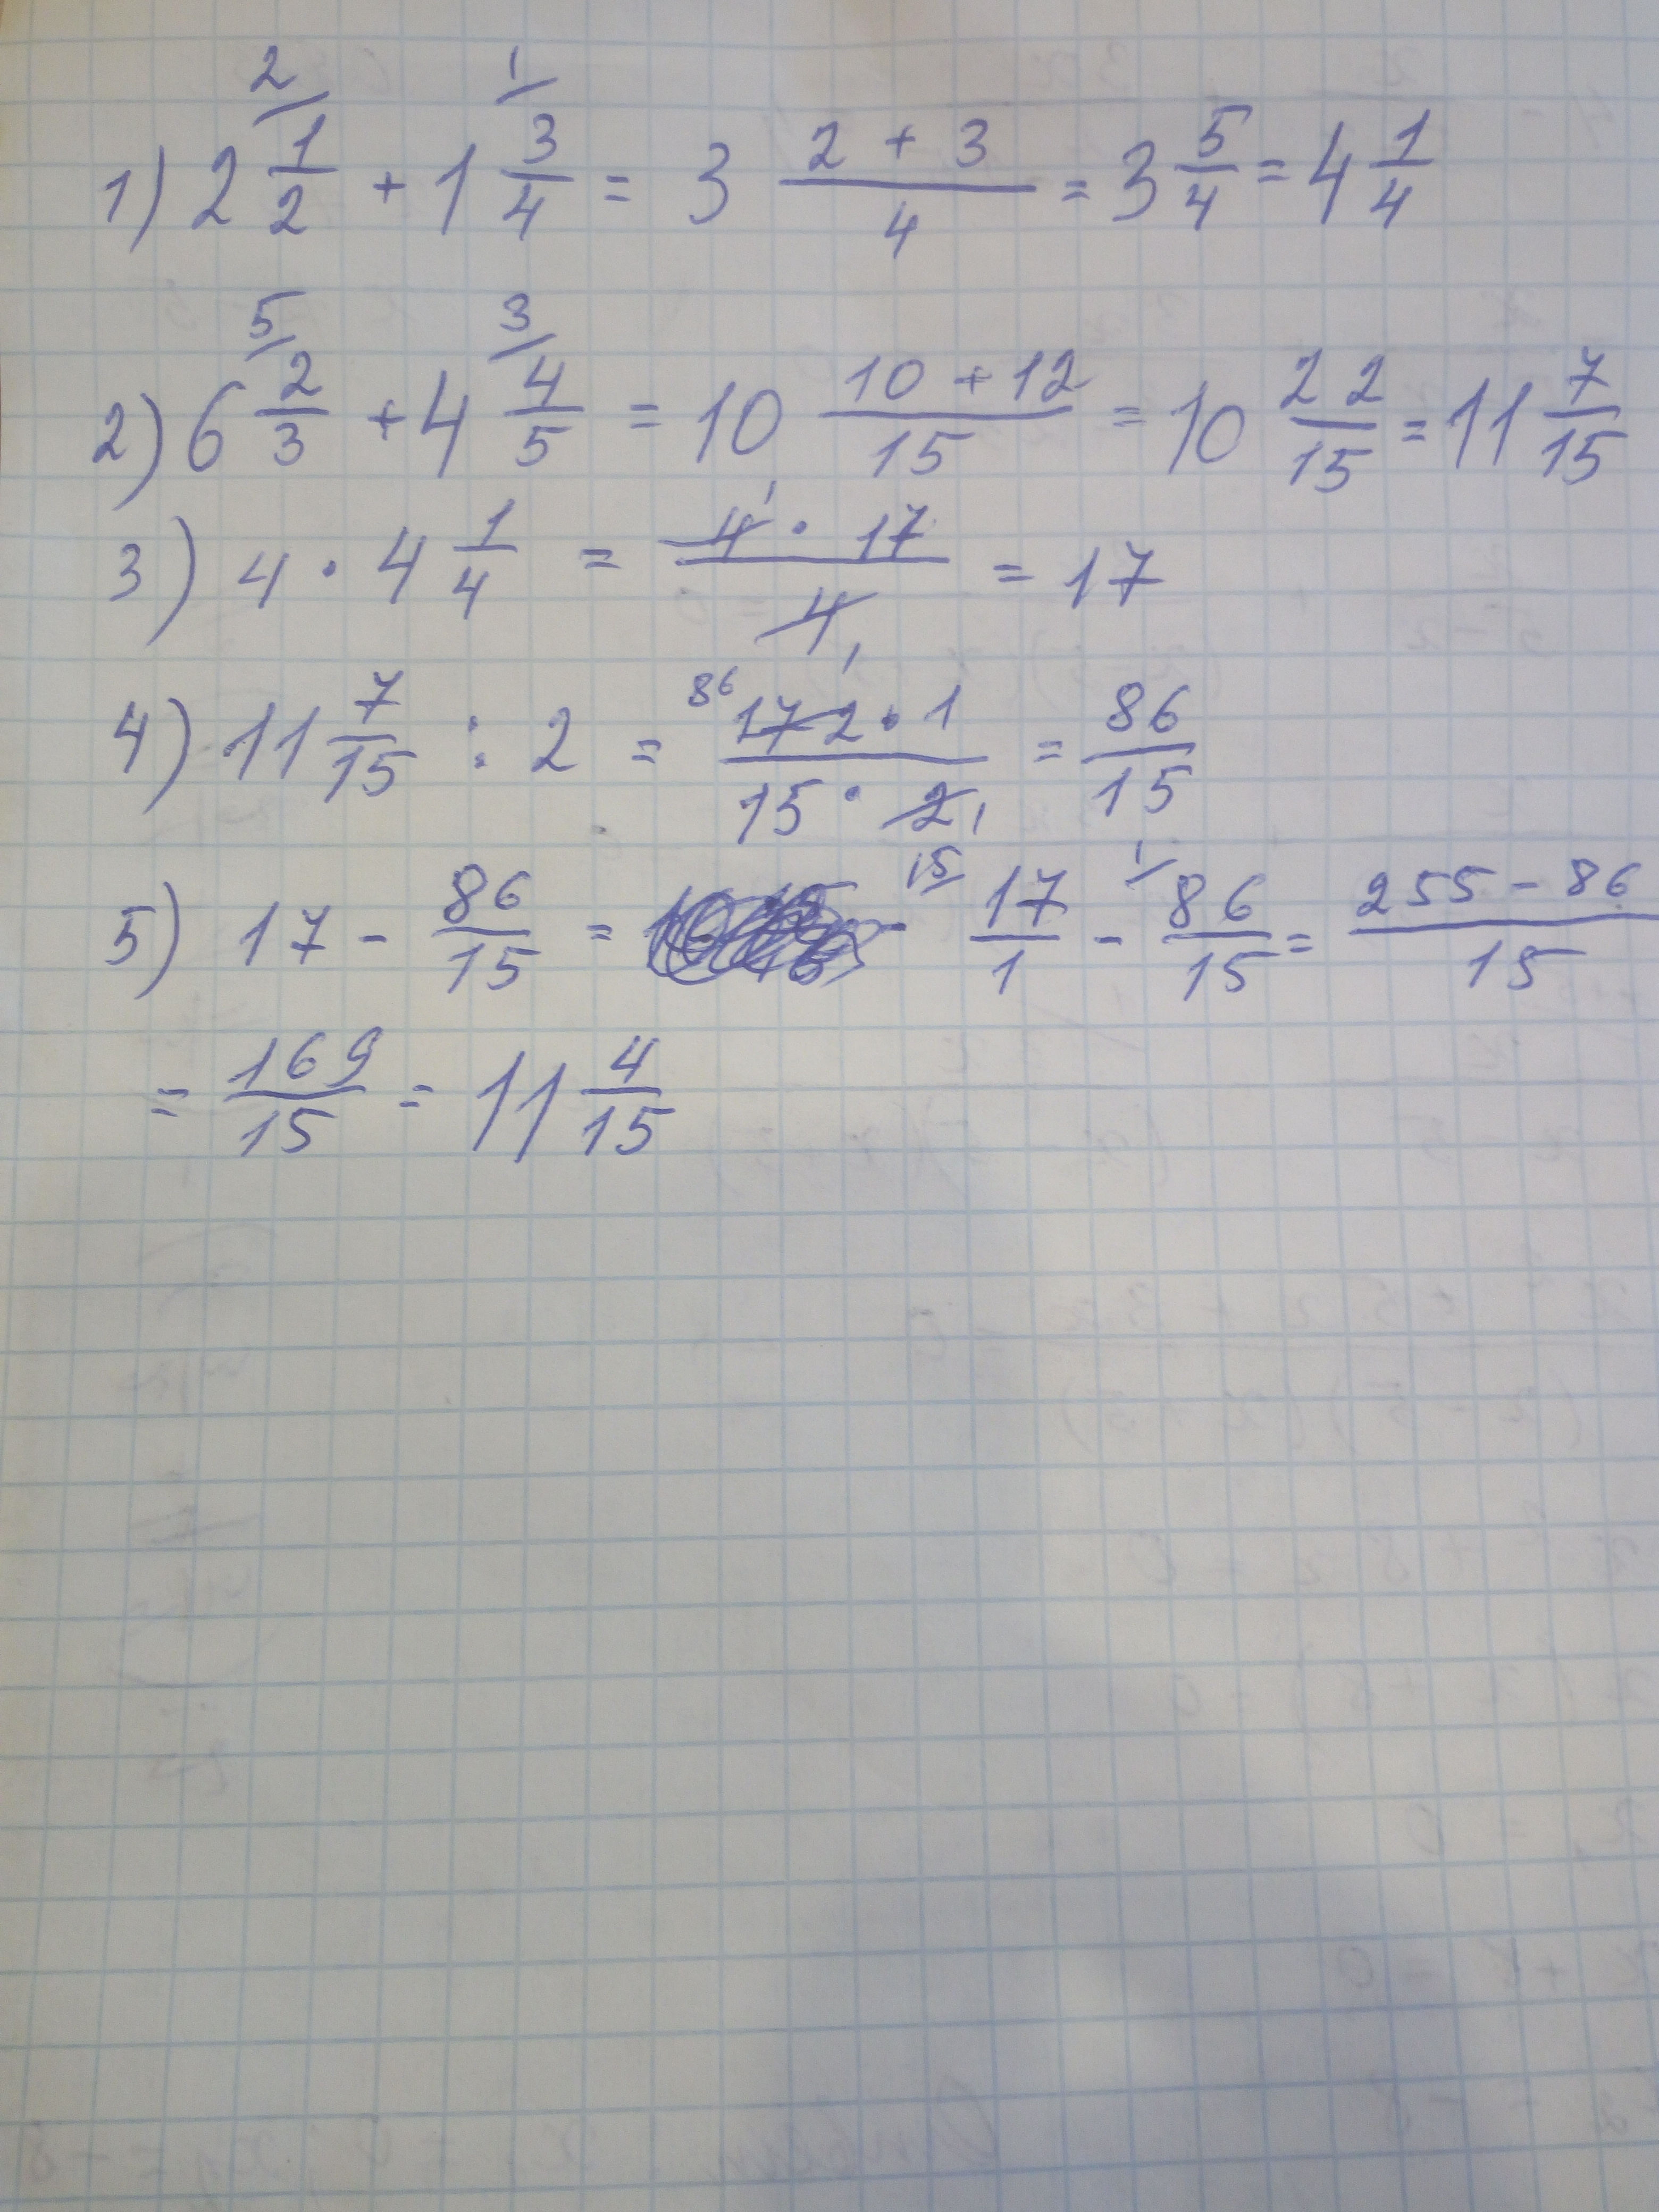 1) 2 1/2 + 1 3/4 = 3 (2 + 3)/4 = 3 5/4 = 4 1/4
2) 6 2/3 + 4 4/5 = 10 (10 + 12)/15 = 10 22/15 = 11 7/15
3) 4 · 4 1/4 = (4 · 17)/4 = 17
4) 11 7/15 : 2 = (172 · 1)/(15 · 2) = 86/15
5) 17 - 86/15 = 17/1 - 86/15 = (255 - 86)/15
= 169/15 = 11 4/15